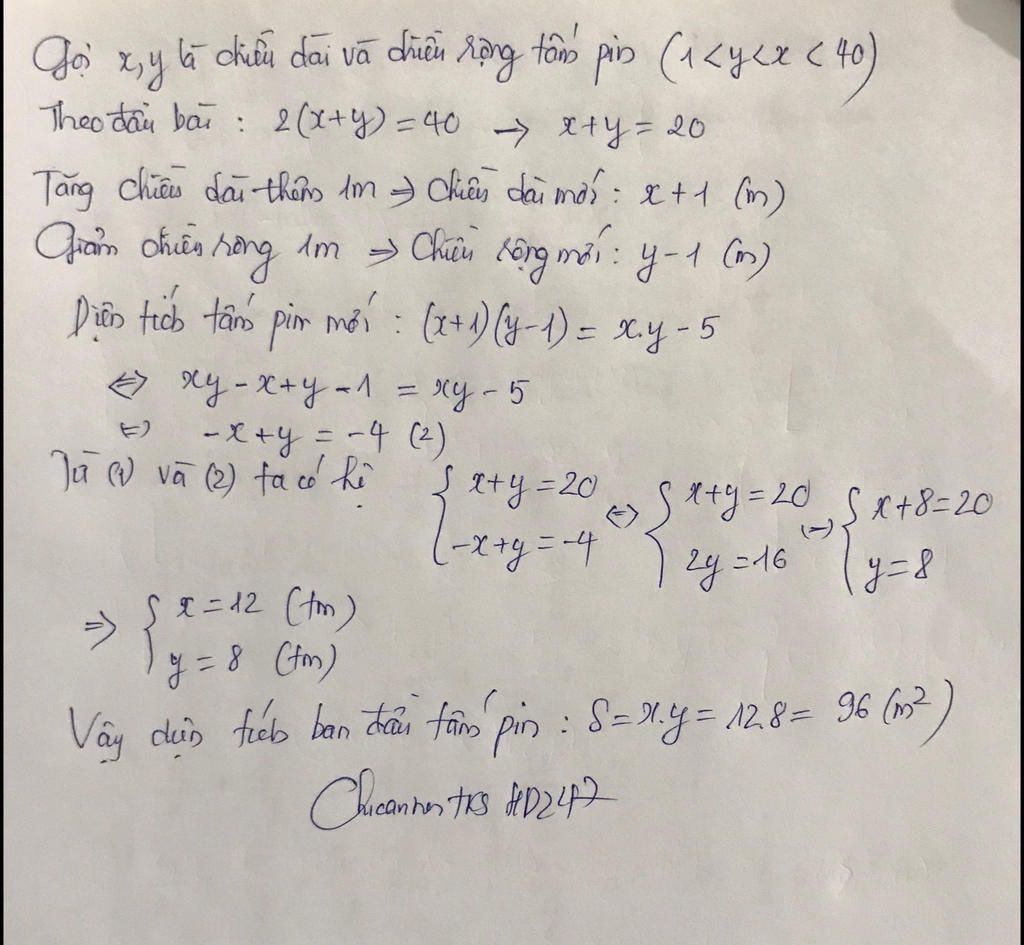 Gọi x, y là chiều dài và chiều rộng tấm pin (1 < y < x < 40)
Theo đầu bài : 2(x+y) = 40 → x+y = 20
Tăng chiều dài thêm 1m ⇒ Chiều dài mới : x + 1 (m)
Giảm chiều rộng 1m ⇒ Chiều rộng mới : y - 1 (m)
Diện tích tấm pin mới : (x+1)(y-1) = x.y - 5
⇔ xy - x + y - 1 = xy - 5
⇔ -x + y = -4 (2)
Từ (1) và (2) ta có hệ { x+y = 20 ⇔ { x+y = 20 ⇔ { x+8 = 20
-x+y = -4 2y = 16 y = 8
⇒ { x = 12 (tm)
y = 8 (tm)
Vậy diện tích ban đầu tấm pin : S = x.y = 12.8 = 96 (m²)
HD247